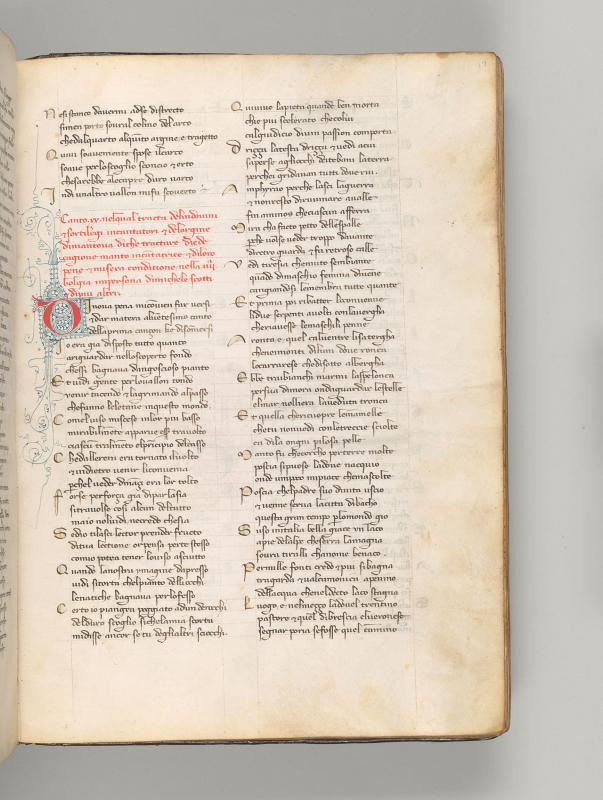 N esi stanco davermi adse distrecto
finen porto sovral colmo delarco
chedalquarto alquinto argine e tragetto
Q uivi soavemente spose ilcarco
soave perloscoglio sconcio & erto
chesarebbe alecapre duro varco
I ndi unaltro vallon mifu scoverto
Canto. xx. nelqual tracta delindovini
& sortilegi incantatori & delorigine
dimantova diche tractare diede
cagione manto incantatrice & diloro
pene & misera conditione nella iiii
bolgia inpersona dimichele scotti
& dipiu altri.
D inova pena miconven far versi
& dar matera alventesimo canto
della prima cançon
I o era gia disposto tutto quanto
ariguardar nelloscoperto fondo
chessi bagnava dangoscioso pianto
E t vidi gente perlovallon tondo
venir tacendo & lagrimando alpasso
chefanno leletane inquesto mondo
C omelviso miscese inlor piu basso
mirabilmente apparve esser travolto
ciascun tralmento elprincipio delcasso
C hedallereni era tornato ilvolto
& indietro venir liconvenia
perchel veder dinançi era lor tolto
F orse perforça gia diparlasia
sitravolse cosi alcun deltutto
maio nolvidi necredo chesia
S edio tilasci lector prender fructo
ditua lectione orpensa perte stesso
comio potea tener loviso asciutto
Q uando lanostra ymagine dapresso
vidi sitorta chelpianto delliocchi
lenatiche bagnava perlofesso
C erto io piangea poggiato adun derocchi
delduro scoglio sichelamia scorta
midisse ancor se tu deglialtri sciocchi
Q uivive lapieta quande ben morta
chie piu scelerato checolui
calgiudicio divin passion comporta
D riçça latesta driçça & vedi acui
saperse agliocchi ditebani laterra
perchei gridavan tutti dove rui
A mphyrao perche lasci laguerra
& nonresto diruvinare avalle
fin aminos checiascun afferra
M ira cha facto petto dellespalle
perche volse veder troppo davante
dietro guarda & fa retroso calle
V edi tiresia chemuto sembiante
quado dimaschio femina divene
cangiandosi lemembra tutte quante
E t prima poi ribatter liconvenne
lidue serpenti avolti conlaverga
cheriavesse lemaschili penne
A ronta e quel calventre lisaterga
chenemonti diluni dove ronca
locarrarese chedisotto albergha
E bbe trabianchi marmi laspelonca
persua dimora ondaguardar lestelle
elmar nolliera lavedura tronca
E t quella chericuopre lemamelle
chetu nonvedi conletreccie sciolte
ca dila ongni pilosa pelle
M anto fu checercho perterre molte
poscia sipuose ladove nacquio
onde unpoco mipiace chemascolte
P oscia chelpadre suo divita uscio
& venne serva lacitta dibacho
questa gran tempo perlomondo gio
S uso initalia bella giace un laco
apie delalpe cheserra lamagna
sovra tiralli chanome benaco.
P ermille fonti credo & piu sibagna
tragarda & valcamonica apenino
dellacqua cheneldecto laco stagna
L uogo e nelmeçço ladovel trentino
pastore & quel dibrescia elveronese
segnar poria sefosse quel camino